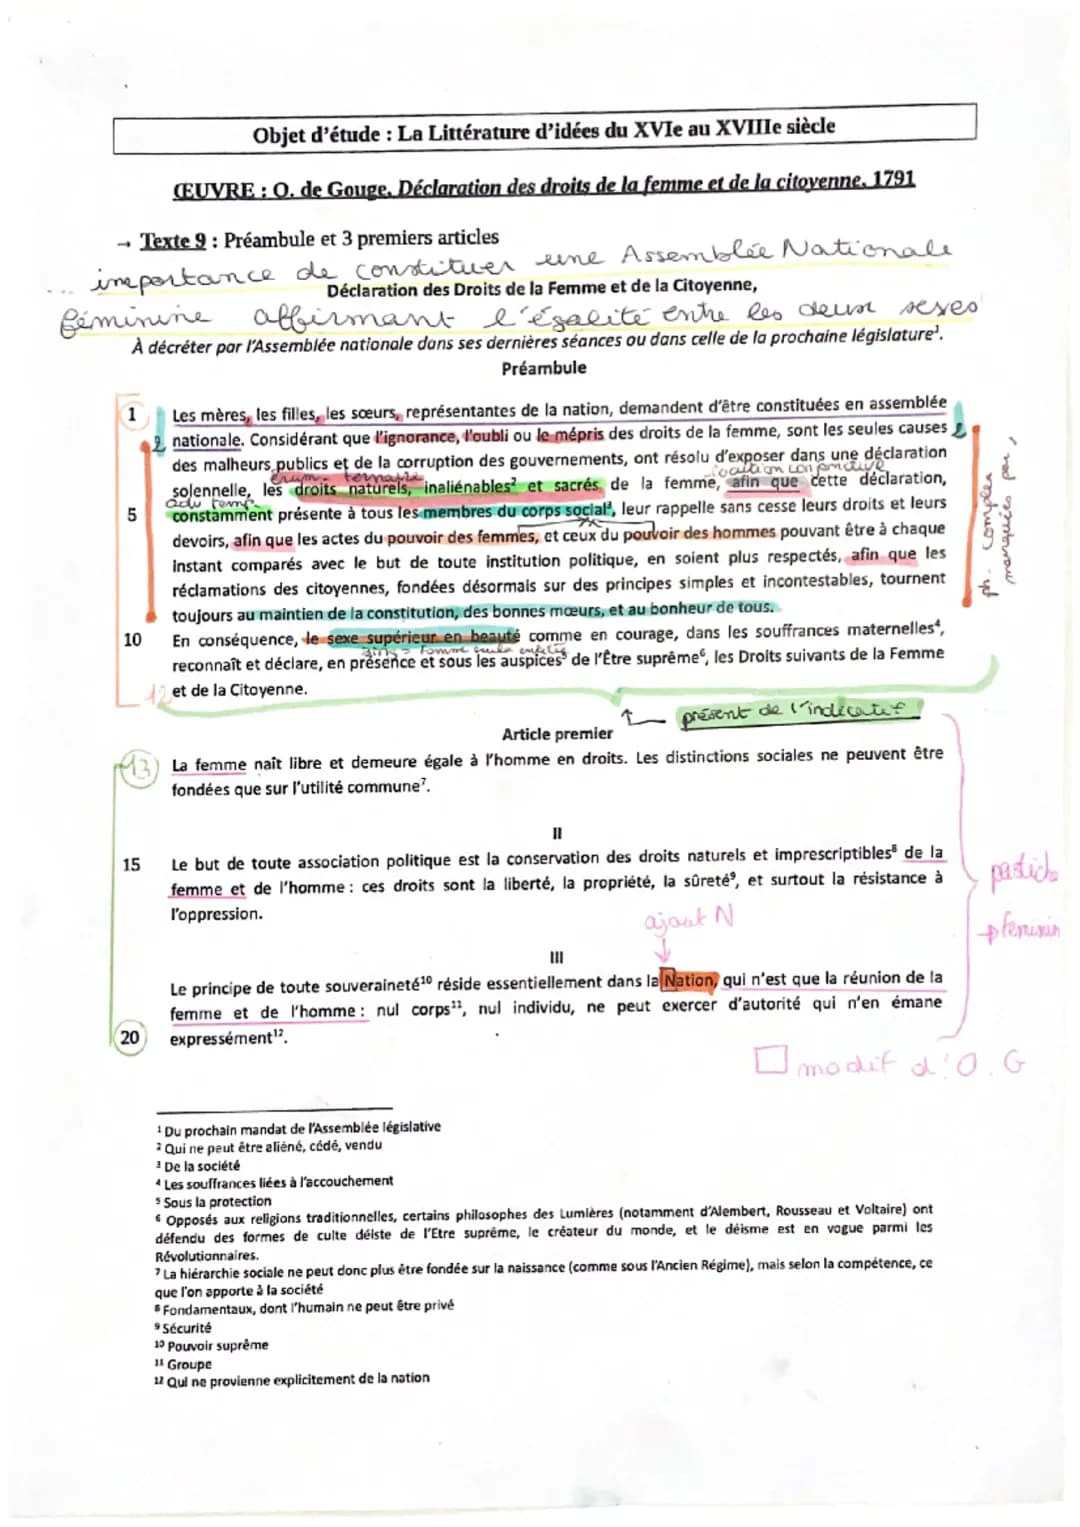 Objet d'étude : La Littérature d'idées du XVIe au XVIIIe siècle
ŒUVRE : O. de Gouge, Déclaration des droits de la femme et de la citoyenne, 1791
→ Texte 9 : Préambule et 3 premiers articles
... importance de constituer une Assemblée Nationale
Déclaration des Droits de la Femme et de la Citoyenne,
féminine affirmant l'égalité entre les deux sexes
À décréter par l'Assemblée nationale dans ses dernières séances ou dans celle de la prochaine législature¹.
Préambule
1 Les mères, les filles, les sœurs, représentantes de la nation, demandent d'être constituées en assemblée
2 nationale. Considérant que l'ignorance, l'oubli ou le mépris des droits de la femme, sont les seules causes 2
des malheurs publics et de la corruption des gouvernements, ont résolu d'exposer dans une déclaration
énum. ternaire locution conjonctive
solennelle, les droits naturels, inaliénables² et sacrés de la femme, afin que cette déclaration,
adv temp.
5 constamment présente à tous les membres du corps social³, leur rappelle sans cesse leurs droits et leurs
devoirs, afin que les actes du pouvoir des femmes, et ceux du pouvoir des hommes pouvant être à chaque
instant comparés avec le but de toute institution politique, en soient plus respectés, afin que les
réclamations des citoyennes, fondées désormais sur des principes simples et incontestables, tournent
toujours au maintien de la constitution, des bonnes mœurs, et au bonheur de tous.
ph. complex
marquées par
10 En conséquence, le sexe supérieur en beauté comme en courage, dans les souffrances maternelles⁴,
reconnaît et déclare, en présence et sous les auspices⁵ de l'Être suprême⁶, les Droits suivants de la Femme
12 et de la Citoyenne.
présent de l'indicatif
Article premier
13 La femme naît libre et demeure égale à l'homme en droits. Les distinctions sociales ne peuvent être
fondées que sur l'utilité commune⁷.
II
15 Le but de toute association politique est la conservation des droits naturels et imprescriptibles⁸ de la
femme et de l'homme : ces droits sont la liberté, la propriété, la sûreté⁹, et surtout la résistance à
l'oppression.
pastich
→ féminin
ajout N
III
Le principe de toute souveraineté¹⁰ réside essentiellement dans la Nation, qui n'est que la réunion de la
femme et de l'homme : nul corps¹¹, nul individu, ne peut exercer d'autorité qui n'en émane
20 expressément¹².
modif d'O.G
¹ Du prochain mandat de l'Assemblée législative
² Qui ne peut être aliéné, cédé, vendu
³ De la société
⁴ Les souffrances liées à l'accouchement
⁵ Sous la protection
⁶ Opposés aux religions traditionnelles, certains philosophes des Lumières (notamment d'Alembert, Rousseau et Voltaire) ont
défendu des formes de culte déiste de l'Etre suprême, le créateur du monde, et le déisme est en vogue parmi les
Révolutionnaires.
⁷ La hiérarchie sociale ne peut donc plus être fondée sur la naissance (comme sous l'Ancien Régime), mais selon la compétence, ce
que l'on apporte à la société
⁸ Fondamentaux, dont l'humain ne peut être privé
⁹ Sécurité
¹⁰ Pouvoir suprême
¹¹ Groupe
¹² Qui ne provienne explicitement de la nation